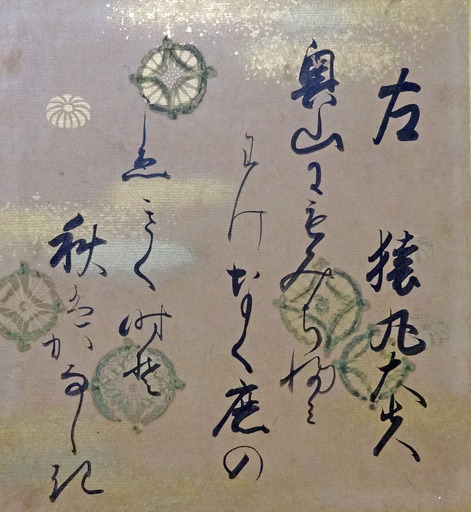 左 猿丸大夫
奥山にもみちふみ
わけなく鹿の
こゑきく時そ
秋はかなしき